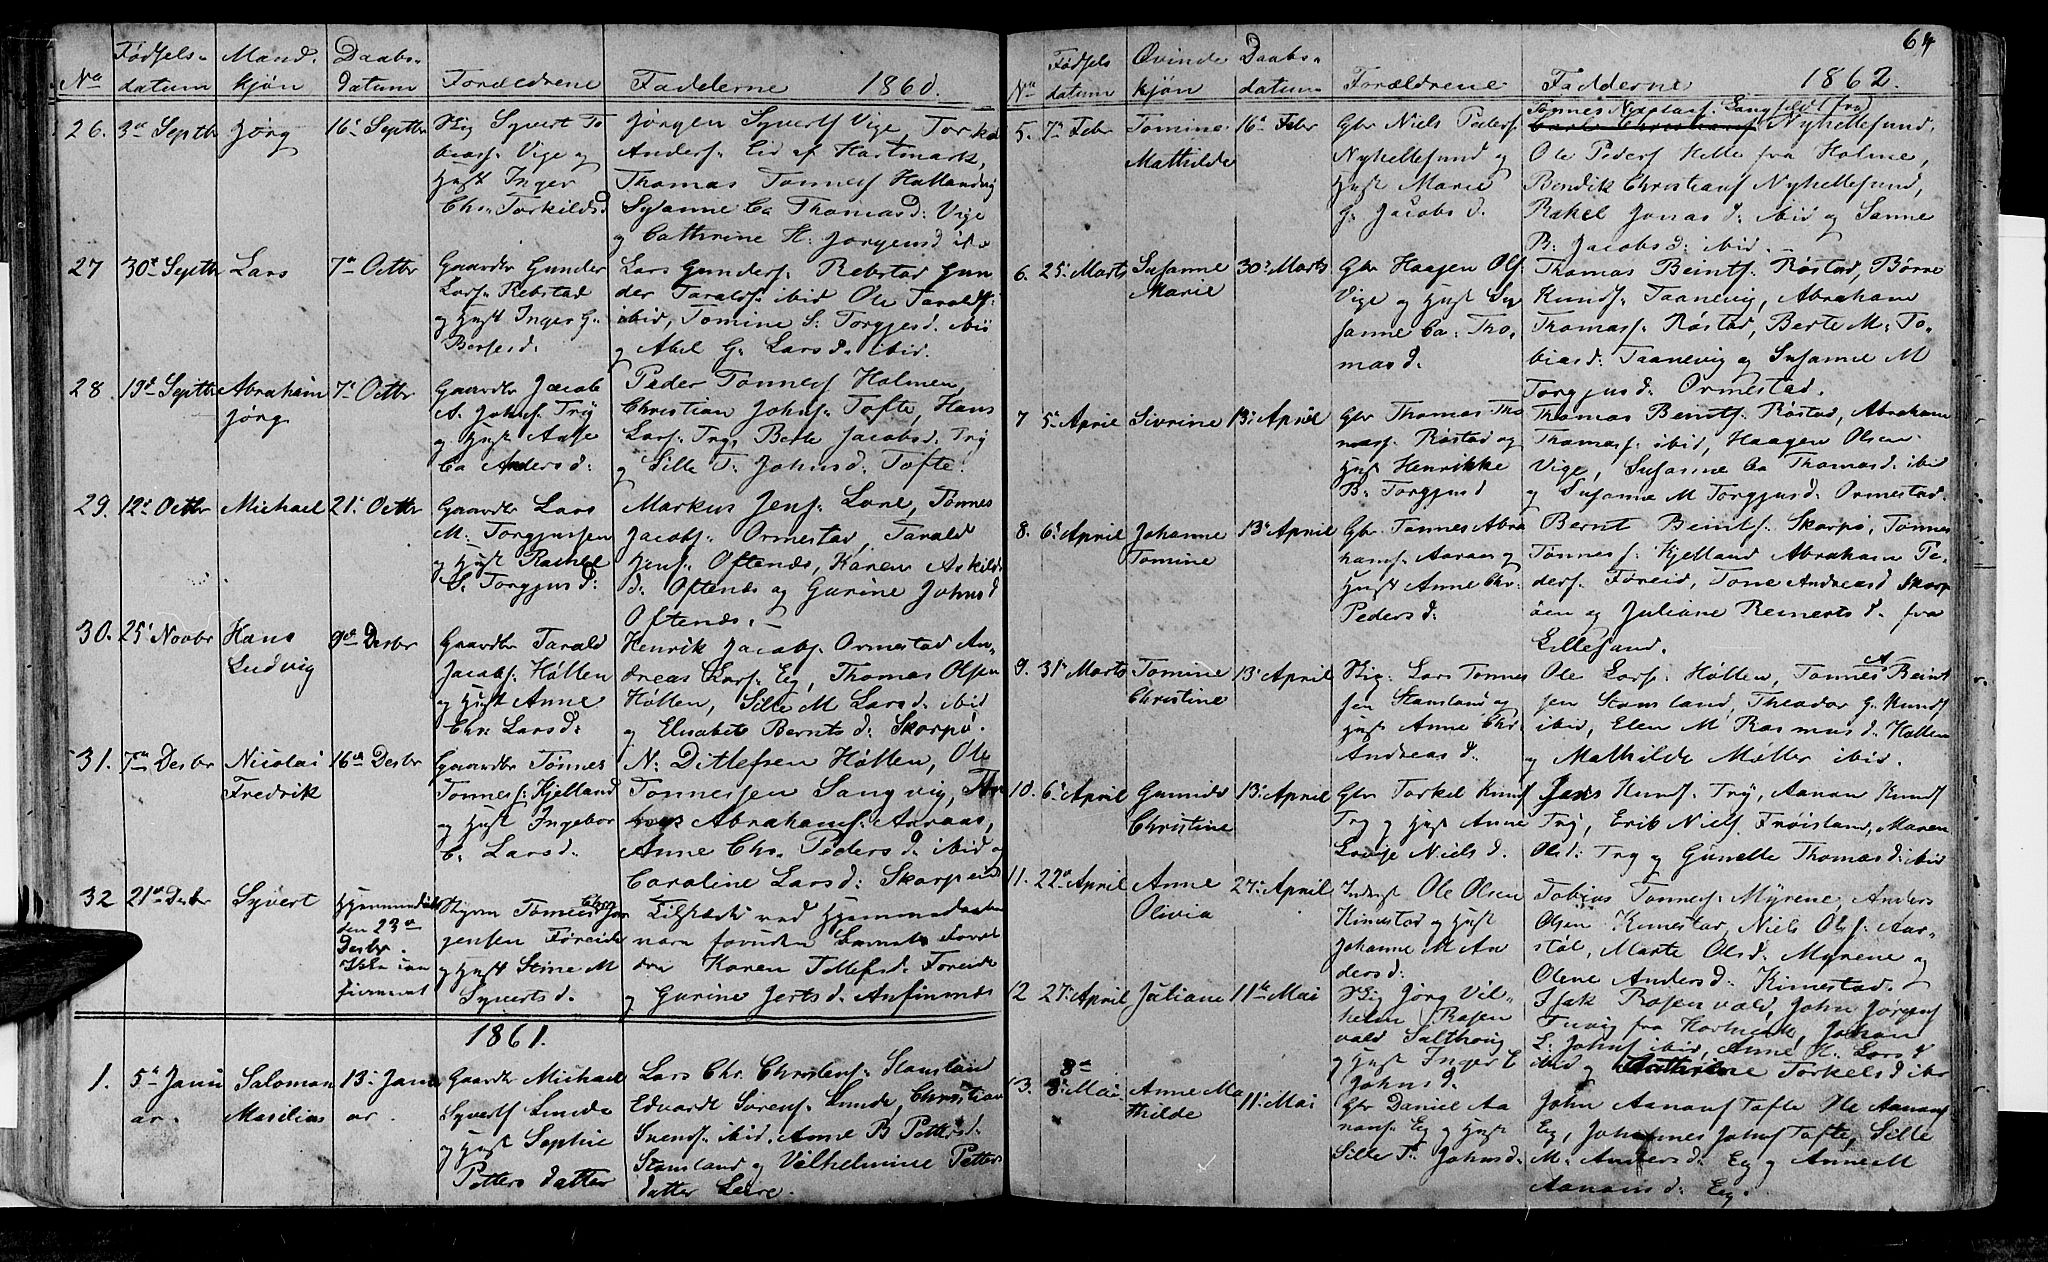 No Fødsels- datum Mand- kjøn Daabs- datum Forældrene Fadderne 1860.
26. 3de Septbr Jørg 16de Septbr
Big Syvert To
biasf: Vige og
Hust Inger
Ch: Torkildsd
Jørgen Syvertf Vige, Torkel
Andersf: Eid af Hartmark,
Thomas Tønnesf Hallandvig
Sysanne Ca Thomasd: Vige
og Cathrine H: Jørgensd
27 30te Septbr Lars 7de Octbr
Gaardbr Gunder
Larsf: Rebstad
og Hust Inger G:
Bersesd.
Lars Gundersf: Rebstad Gun
der Taraldsf: ibid Ole Taraldsf:
ibid, Tomine S: Torgjesd. ibid
og Abel G: Larsd. ibid.
28 19de Septbr Abraham Jørg 7de Octbr
Gaardbr Jacob
A. Johnsf: Try
og Hust Aase
Ca Andersd:
Peder Tønnesf Holmen,
Christian Johnsf: Tofte, Hans
Larsf: Try, Berte Jacobsd: Try
og Sille T: Johnsd: Tofte.
29. 12te Octbr Michael 21de Octbr
Gaardbr Lars
M: Torgjussen
og Hust Rachel
S. Torgjusd:
Markus Jensf: Lone, Tønnes
Jacobsf: Ormestad, Tarald
Jensf: Oftenæs, Karen Askilds
d. Oftenæs og Gurine Johnsd
Oftenæs.
30. 25de Novbr Hans Ludvig 9de Desbr
Gaardbr Tarald
Jacobsf: Høllen
og Hust Anne
Chr: Larsd:
Henrik Jacobsf: Ormestad An-
dreas Larsf: Eg, Thomas Olsen
Høllen, Sille M Larsd: ibid
og Elisabeth Berntsd: Skarpø.
31. 7de Desbr Nicolai Fredrik 16de Desbr
Gaardbr Tønnes
Tønnesf: Kjelland
og Hust Ingebor
C. Larsd.
N: Ditlefsen Høllen, Ole
Tønnessen Langvig,
Abrahamf: Aaraas,
Anne Chr. Pedersd. ibid og
Caroline Larsd: Skarpøid
32 21de Desbr Syvert Hjemmedøbt den 23de Desbr.
Tønnes Chr Jør
gensen Føreid
og Hust Stine M
Syvertsd.
Tilstede ved Hjemmedaaben
vare foruden Barnets Foræl
dre Karen Tellefsd: Foreide
og Gurine Jertsd: Anfinnæs
1861.
1. 5te Janu ar. Salomon Masilius 13de Janu ar.
Gaardbr Michael
Syvertf Lunde
og Hust Sophie
Petters datter
Lars Chr. Christensf: Stansland
Edvardt Sørensf: Lunde, Christian
Svendsf: ibid, Anne B Pettersd:
Stansland og Vilhelmine Petters
datter Leire.
64
No Fødsels datum Qvinde kjøn Daabs- datum Forældrene Fadderne 1862.
5. 7de Febr Tomine Mathilde 16de Febr
Gbr Niels Pedersf:
Nyhellesund og
Hust Marie
G: Jacobsd.
Nyhellesund,
Ole Pedersf Helle fra Holme,
Bendik Christiansf Nyhellesund,
Rakel Jonasd: ibid og Sanne
B: Jacobsd: ibid.
6. 25de Marts Susanne Marie 30de Marts
Gbr Haagen Olsf
Vige og Hust Su
sanne Ca: Tho
masd.
Thomas Beintsf: Røstad, Børre
Knudsf: Taanevig, Abraham
Thomasf: Røstad, Berte M: To-
biasd: Taanevig og Susanne M
Torgjusd: Ormestad.
7 5te April Sivrine 13de April
Gbr Thomas Tho
masf: Røstad og
Hust Henrikke
B: Torgjusd
Thomas Beintsf: Røstad, Abraham
Thomasf: ibid, Haagen Olsen
Vige, Susanne Ca Thomasd: ibid
og Susanne M Torgjusd: Ormestad.
8. 6te April Johanne Tomine 13de April
Gbr Tønnes Abra
hamsf: Aaraas og
Hust Anne Chr.
Pedersd:
Bernt Beintsf: Skarpø, Tønnes
Tønnesf: Kjelland Abraham Pe-
dersf: Føreid, Tone Andreasd Skarp
øen og Juliane Reinertsd. fra
Lillesand.
9. 31te Marts Tomine Christine 13de April
Big: Lars Tønnes
sen Stansland og
Hust Anne Chr.
Andreasd.
Ole Larsf: Høllen, Tønnes A Beint
sen Stansland, Theodor G. Knudsf
ibid, Elen M Rasmusd: Høllen
og Mathilde Møller ibid.
10. 6te April Gunnild Christine 13de April
Gbr Torkel Knudsf
Try og Hust Anne
Lovise Nielsd.
Jens Knudsf: Try, Aanon Knudsf
Try, Erik Nielsf. Frøisland, Maren
Olsd: Try og Gunelle Thomasd: ibid
11. 22de April Anne Olivia 27de April
Inderst Ole Olsen
Kimestad og Hust
Johanne M An
dersd:
Tobias Tønnesf: Myrene, Anders
Olsen Kimestad, Niels Olsf: Aar-
støl, Marte Olsd: Myrene og
Olene Andersd: Kimestad.
12 27de April Juliane 11te Mai
Big Jørg Vil-
helm Rosen
vald Salthaug
og Hust Inger E
Johnsd.
Isak Rosenvald, John Jørgensf
Tuvig fra Hartmark, Johan
L: Johnsf ibid, Anne H. Larsd
ibid og Cathrine Torkelsd ibr
13. 8de Mai Anne Ma thilde 11te Mai
Gbr Daniel Aa
nonsf: Eg og Hust
Sille T. Johnsd:
John Aanonsf Tofte Ole Aanonsf
Eg, Johannes Johnsf Tofte, Sille
M. Andersd. Eg og Anne M
Aanonsd: Eg.